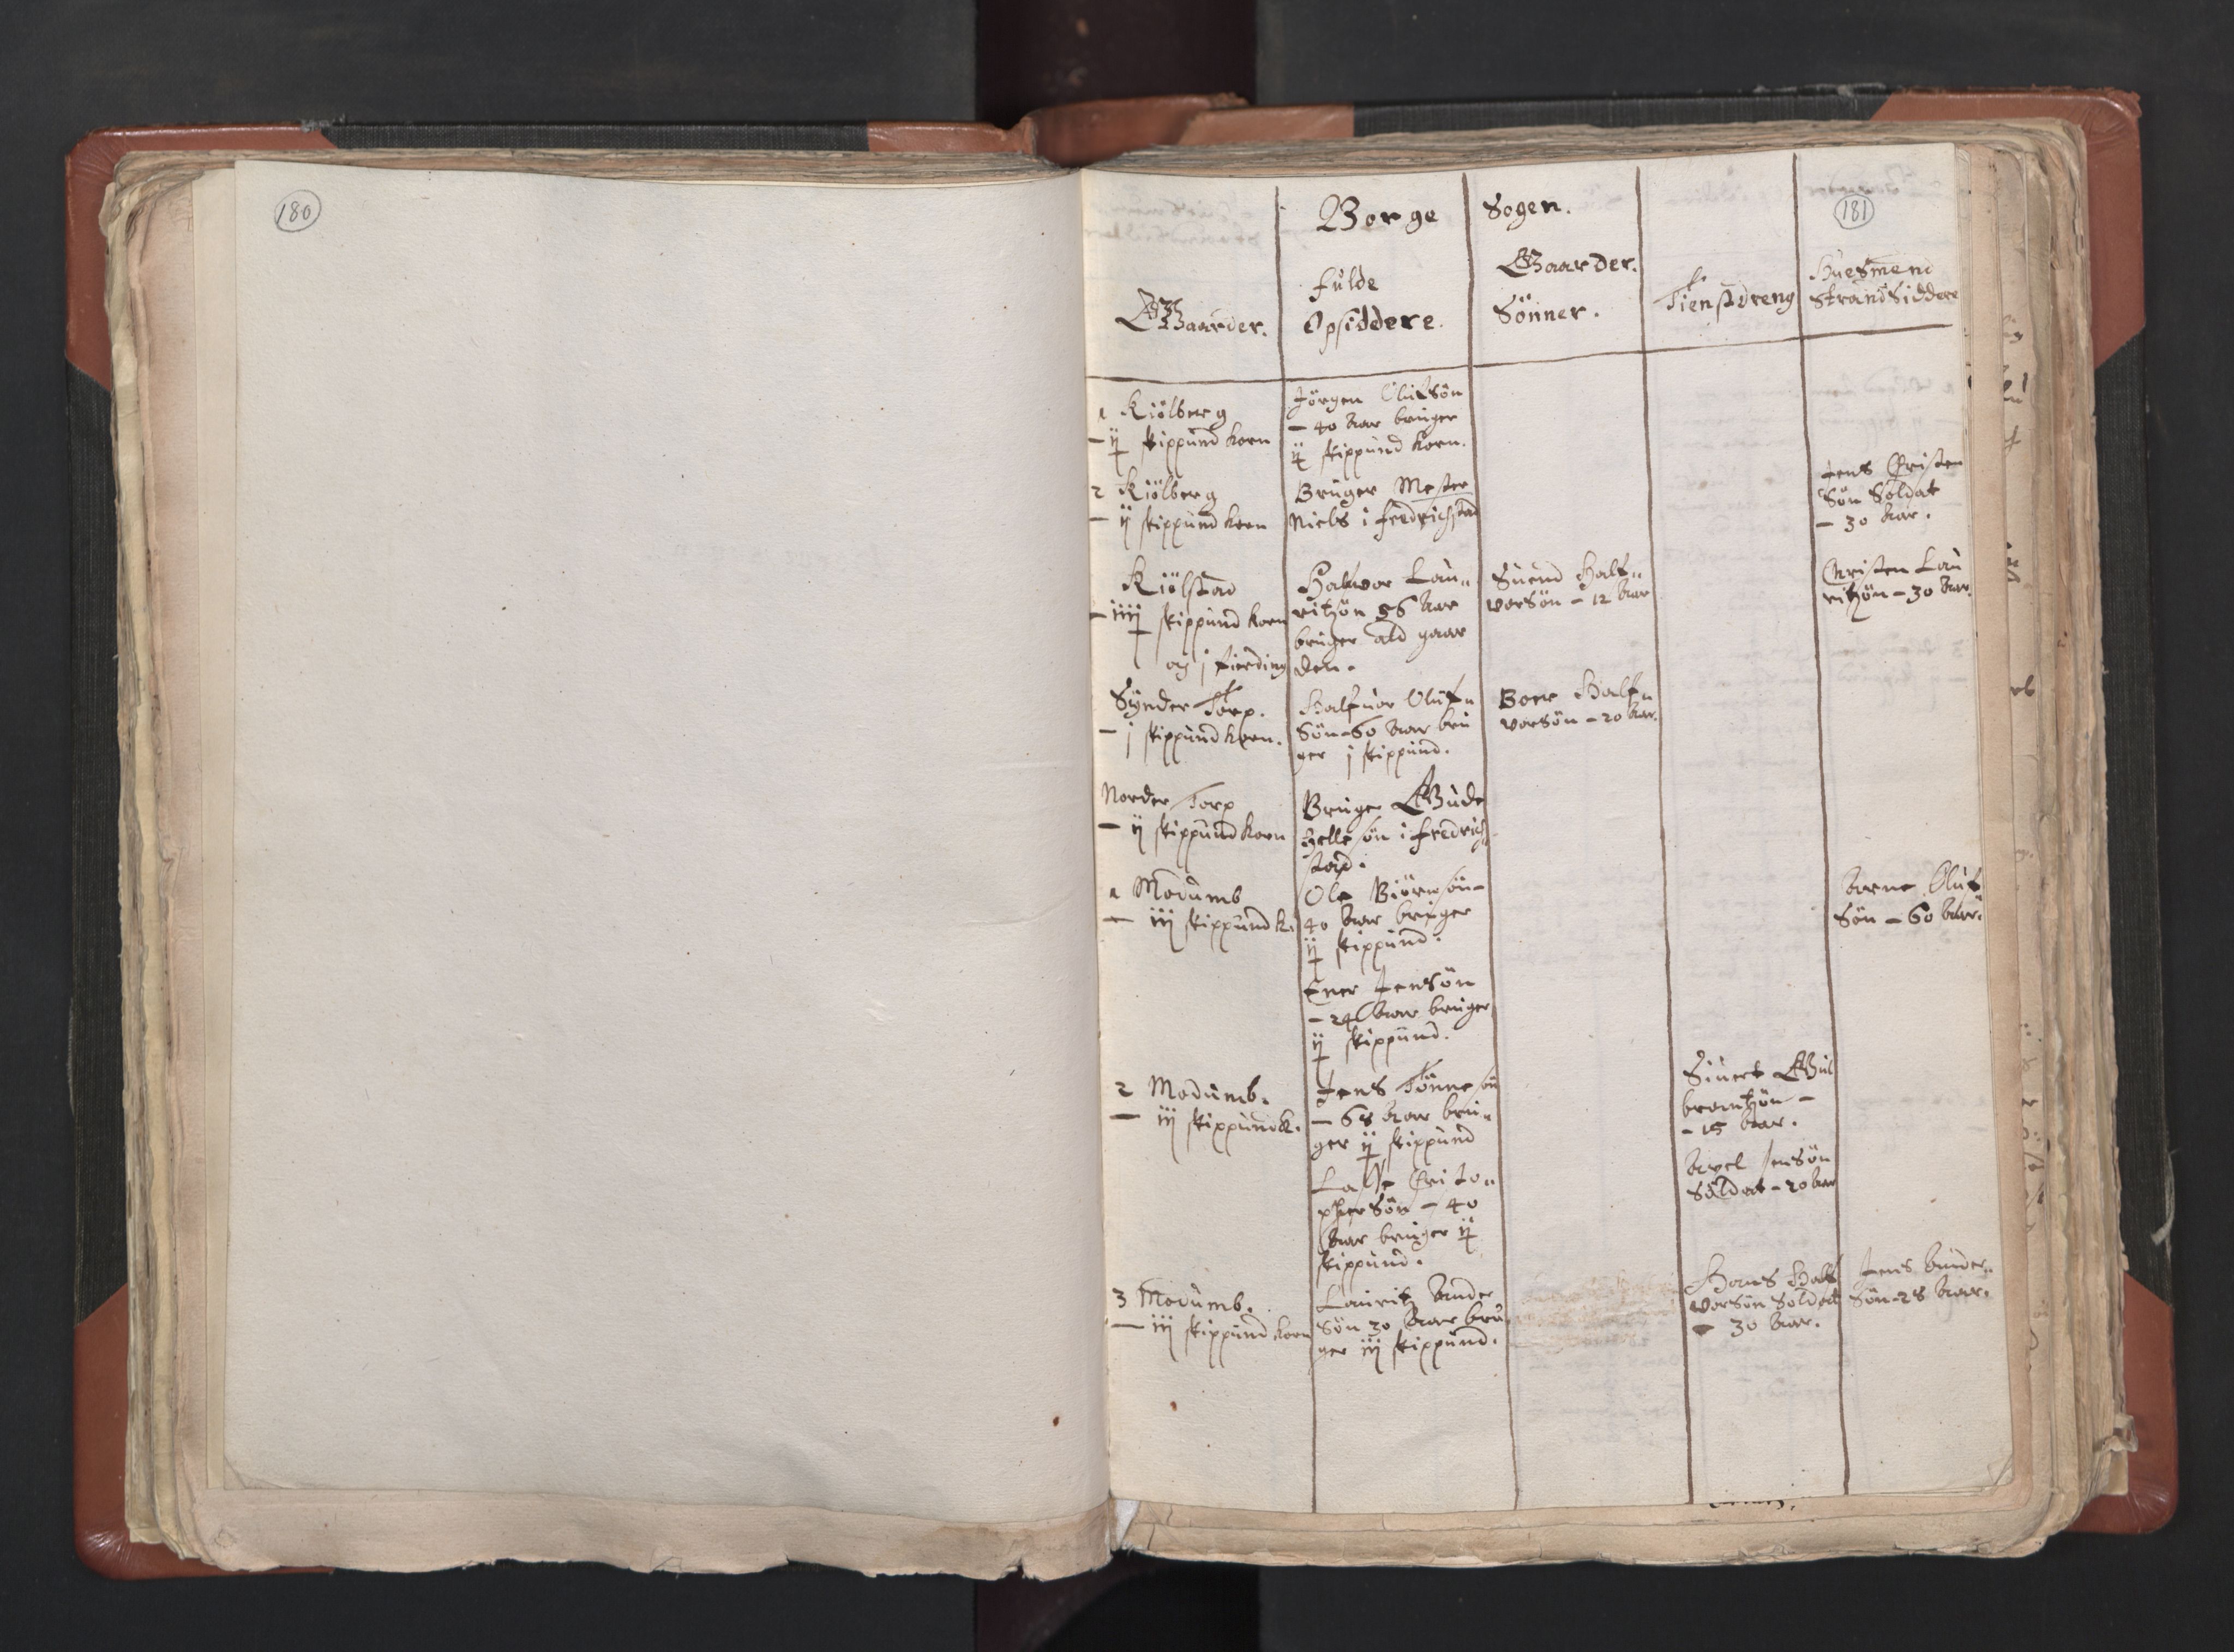 180
181
Borge Sogen.
Fulde Gaarder.
Gaarder. Opsiddere. Sönner. Tienstdreng Huesmend
StrandSiddere
1 Kiölberg
– ij skippund korn
Jörgen Olufsön
– 40 Aar bruger
ij skippund korn.
2 Kiölberg
– ij skippund korn
Bruger Mester
Niels i fredrichstad
Jens Christen
Sön Soldat
– 30 Aar.
Kiölstad
– iiij skippund korn
og j fierding
Halwor Lau„
ritzön 56 Aar
bruger ald gaar
den.
Suend Half„
vorsön – 12 Aar
Christen Lau
ritzön – 30 Aar.
Synder Torp.
– j skippund korn.
Halfuor Oluf„
Sön – 60 Aar bru
ger j skippund.
Bore Half„
vorsön – 20 Aar.
Norder Torp
– ij skippund korn
Bruger Gude
Hellesön i fredrich
stad.
1 Modumb
– iij skippund k.
Ole Biörnsön –
40 Aar bruger
ij skippund.
Arne Oluf
Sön – 60 Aar.
Ener Jensön
– 24 Aar bruger
ij skippund.
2 Modumb.
– iij skippund k.
Jens Tönnesön
– 68 Aar bru„
ger ij skippund
Siuert Gul
brantzön –
– 15 Aar.
Lasse Christo„
pherSön – 40
Aar bruger ij
skippund.
Axel Jensön
Soldat – 20 Aar
3 Modumb.
– iij skippund korn
Lauritz Ander
Sön 30 Aar bru
ger iij skippund.
Hans Half
vorsön Soldat
– 30 Aar.
Jens Ander„
Sön – 28 Aar.